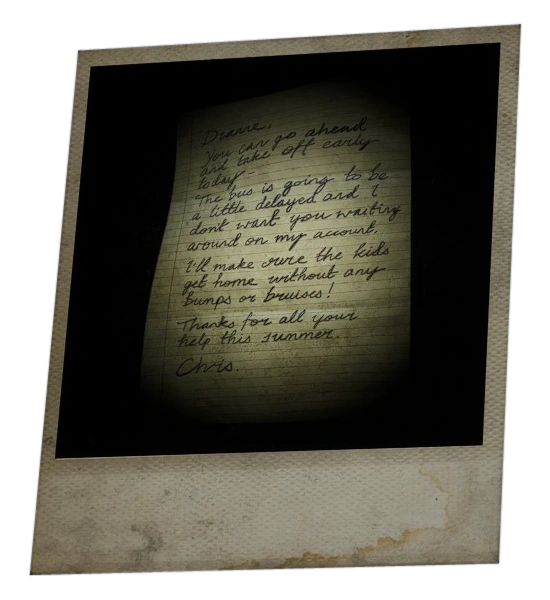 Dianne,
You can go ahead
and take off early
today-
The bus is going to be
a little delayed and I
don't want you waiting
around on my account.
I'll make sure the kids
get home without any
bumps or bruises!
Thanks for all your
help this summer.
Chris.